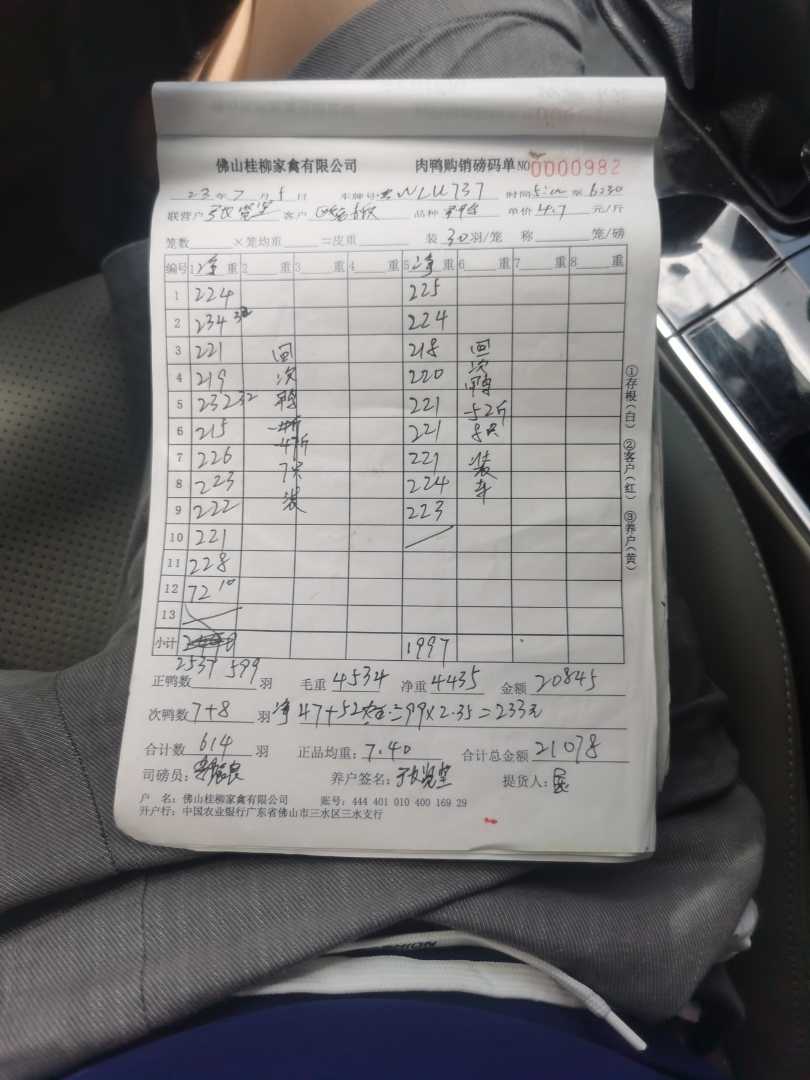 佛山桂柳家禽有限公司 肉鸭购销磅码单 NO 0000982
23年7月 日 车牌号 WLU737 时间 至6:30
联营户 客户 品种 单价4.7元/斤
笼数 ×笼均重 =皮重 装30羽/笼 称 笼/磅
编号 1净重 2 重 3 重 4 重 5净重 6 重 7 重 8 重
1 224 225
2 234 32 224
3 221 回 218 回
4 219 次 220 次鸭
5 232 32 鸭 221 -52斤
6 215 47斤 221 8只
7 226 7只 221 装
8 223 装 224 车
9 222 223
10 221
11 228
12 72 10
13
小计 1997
2537 599
正鸭数 羽 毛重4534 净重4435 金额20845
次鸭数7+8羽 净47+52 =99×2.35=233元
合计数614羽 正品均重:7.40 合计总金额21078
司磅员: 养户签名: 提货人:
户 名:佛山桂柳家禽有限公司 账号:444 401 010 400 169 29
开户行:中国农业银行广东省佛山市三水区三水支行
①存根(白) ②客户(红) ③养户(黄)